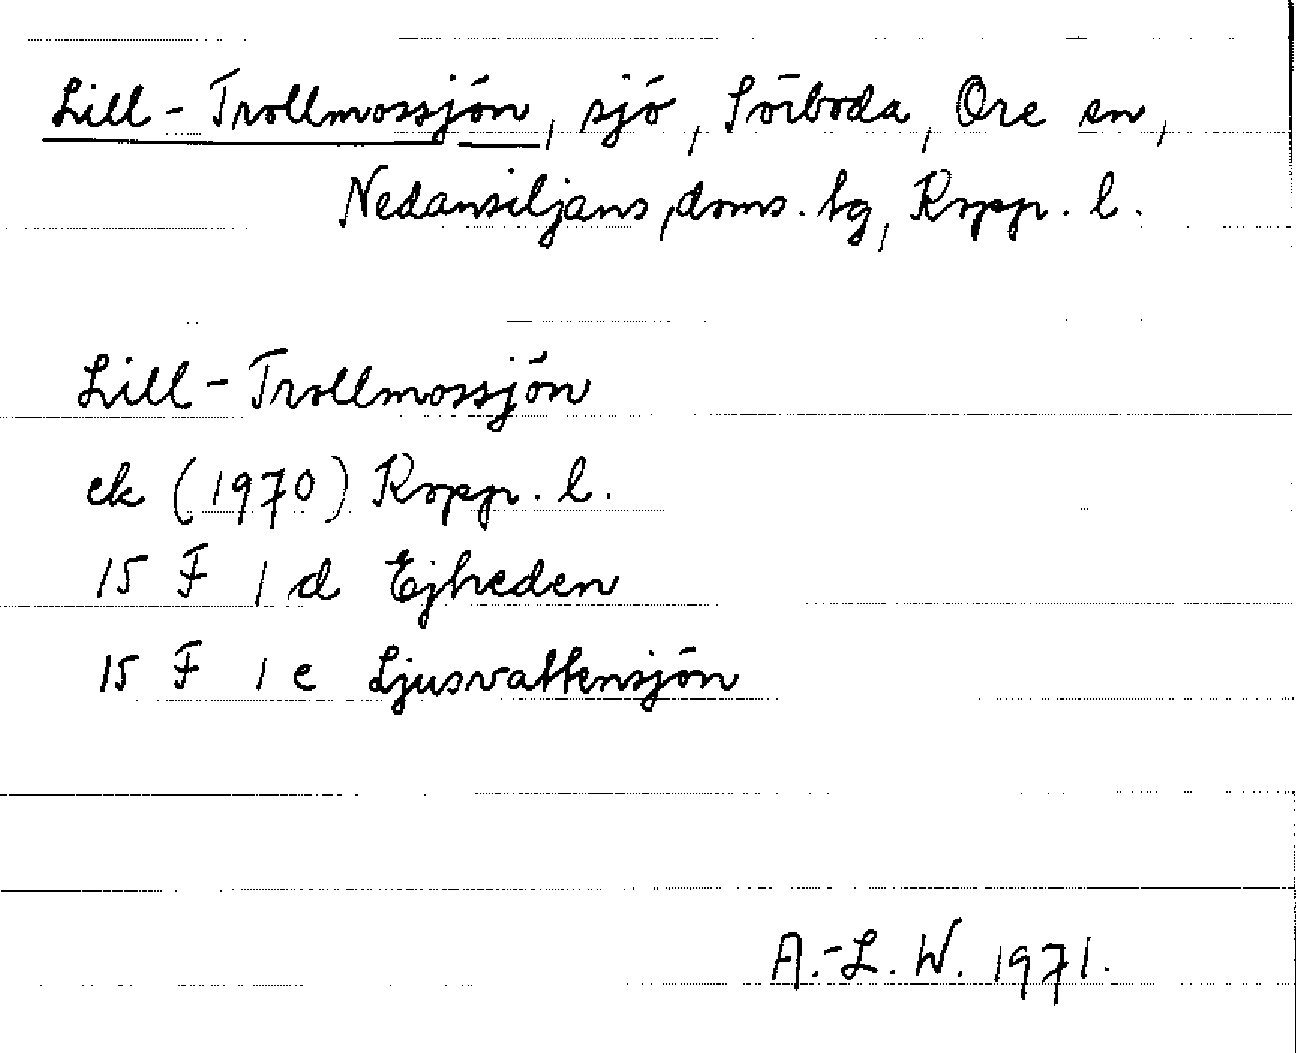 Lill-Trollmossjön, sjö, Sörboda, Ore sn,
Nedansiljans doms. tg, Kopp. l.
Lill-Trollmossjön
ek (1970) Kopp. l.
15 F 1 d Ejheden
15 F 1 e Ljusvattensjön
A.-L. W. 1971.